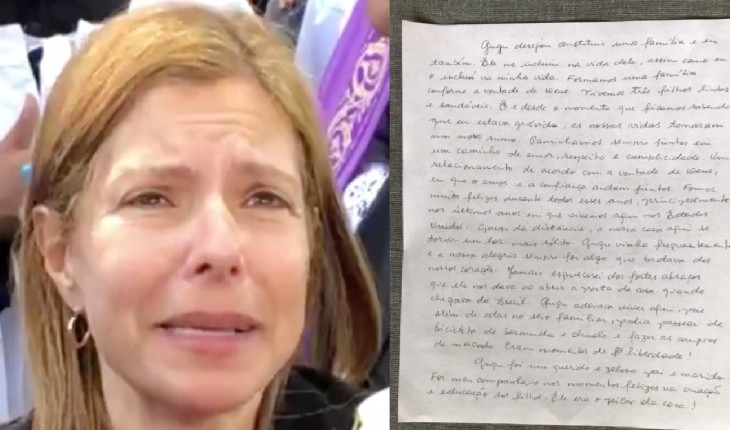 Gugu desejou constituir uma família e eu
também. Ele me incluiu na vida dele, assim como eu
o incluí na minha vida. Formamos uma família
conforme a vontade de Deus. Tivemos três filhos lindos
e saudáveis. E desde o momento que ficamos sabendo
que eu estava grávida, as nossas vidas tomaram
um novo rumo. Caminhávamos sempre juntos em
em um caminho de amor, respeito e cumplicidade. Um
relacionamento de acordo com a vontade de Deus,
em que o amor e a confiança andem juntos. Fomos
muito felizes durante todos esses anos, principalmente
nos últimos anos em que vivemos aqui nos Estados
Unidos. Apesar da distância, a nossa casa aqui se
tornou um lar mais sólido. Gugu vinha frequentemente
e a nossa alegria sempre foi algo que brotava dos
nossos corações. Jamais esquecerei dos fortes abraços
que ele nos dava ao abrir a porta de casa quando
chegava do Brasil. Gugu adorava viver aqui, pois
além de estar no seio familiar, podia passear de
bicicleta de bermuda e chinelo e fazer as compras
de mercado. Eram momentos de liberdade!
Gugu foi um querido e zeloso pai e marido.
Foi meu companheiro nos momentos felizes na criação
e educação dos filhos. Ele era o pilar da casa!